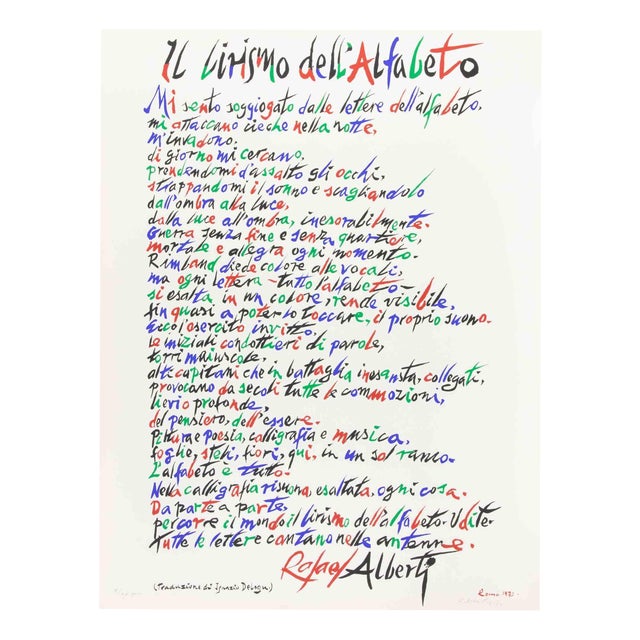 Il lirismo dell'Alfabeto
Mi sento soggiogato dalle lettere dell'alfabeto,
mi attaccano cieche nella notte,
m'invadono.
di giorno mi cercano,
prendendomi d'assalto gli occhi,
strappandomi il sonno e scagliandolo
dall'ombra alla luce,
dalla luce all'ombra, inesorabilmente.
Guerra senza fine e senza quartiere,
mortale e allegra ogni momento.
Rimbaud diede colore alle vocali,
ma ogni lettera - tutto l'alfabeto -
si esalta in un colore, rende visibile,
fin quasi a poterlo toccare, il proprio suono.
Ecco l'esercito invitto,
le iniziali condottieri di parole,
torri maiuscole,
alti capitani che in battaglia inesausta, collegati,
provocano da secoli tutte le commozioni,
lievi o profonde,
del pensiero, dell'essere.
Pittura e poesia, calligrafia e musica,
foglie, steli, fiori, qui, in un sol ramo.
L'alfabeto è tutto.
Nella calligrafia risuona, esaltata, ogni cosa.
Da parte a parte,
percorre il mondo il lirismo dell'alfabeto. Udite.
Tutte le lettere cantano nelle antenne.
Rafael Alberti
(Traduzione di Ignazio Delogu)
Roma 1972.